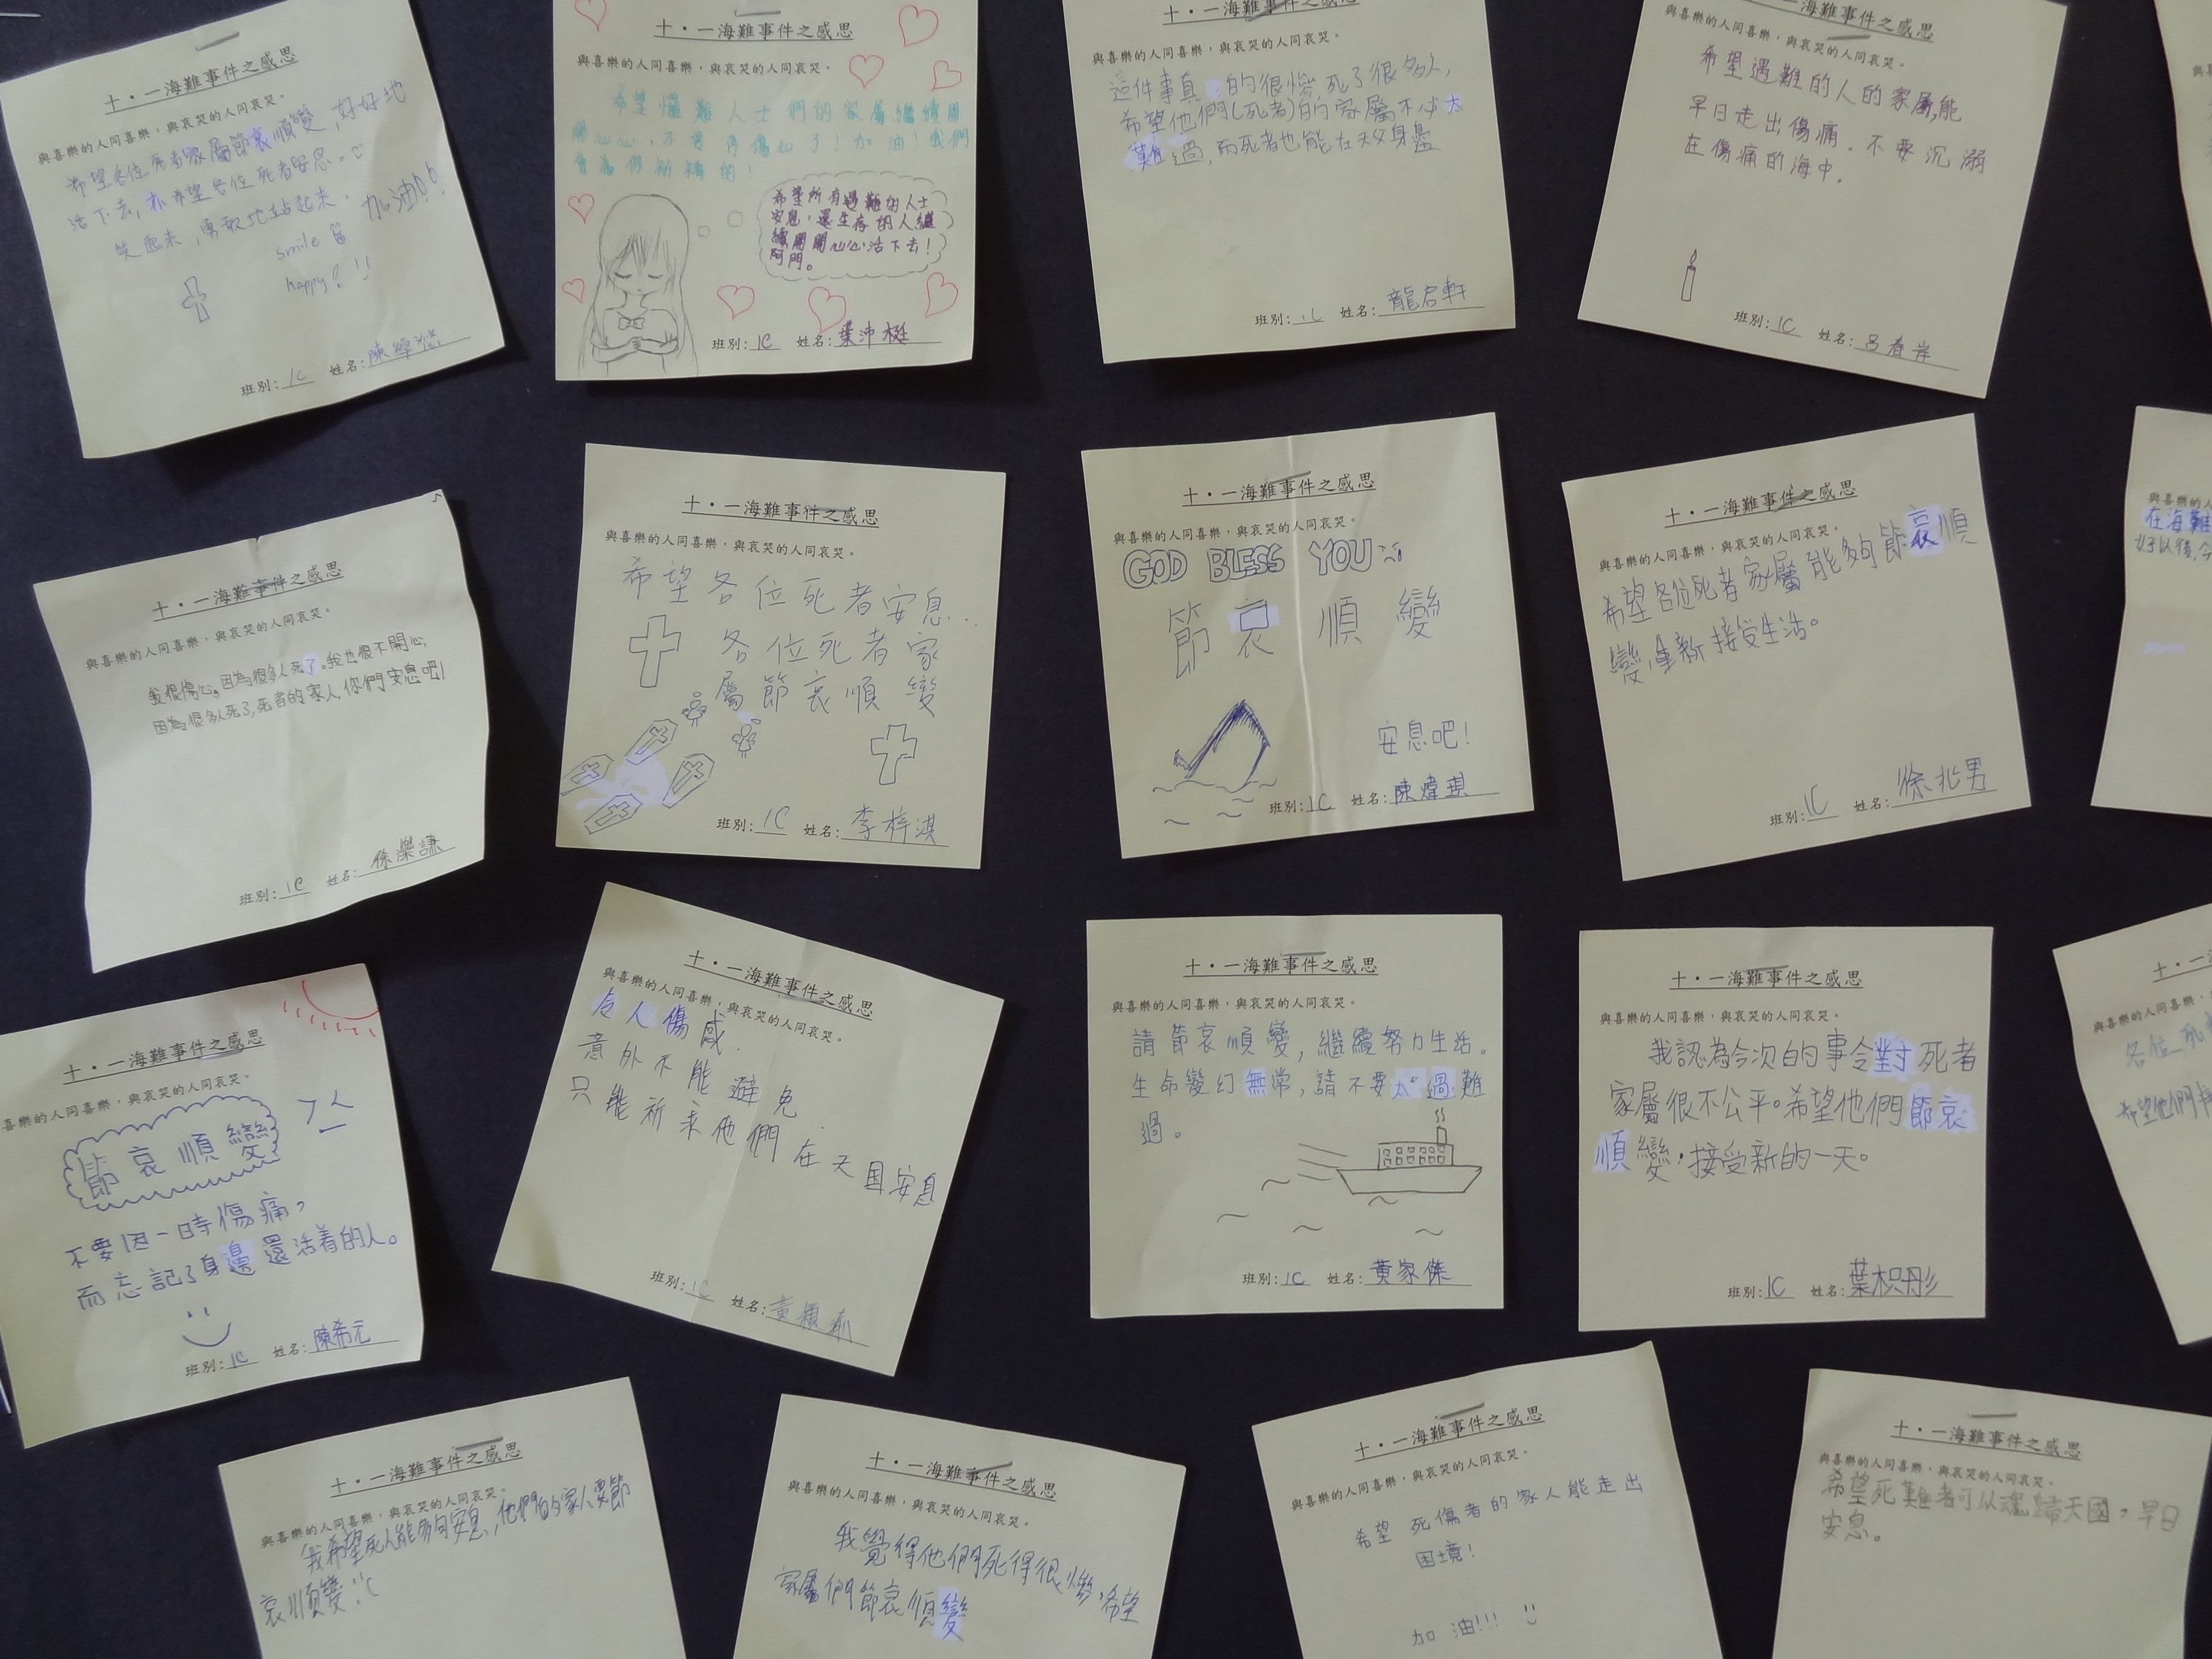 十・一海難事件之感思
與喜樂的人同喜樂，與哀哭的人同哀哭。
希望各位死者家屬節哀順變，好好地
活下去，亦希望各位死者安息。
笑起來，勇敢地站起來. 加油!!
smile
happy! !!
班別: 1C 姓名: 陳
十・一海難事件之感思
與喜樂的人同喜樂，與哀哭的人同哀哭。
希望罹難人士們的家屬繼續開
開心心，不要再傷心了！加油！我們
會為你祈禱的！
希望所有遇難的人士
安息，還生存的人繼
續開開心心活下去！
阿門。
班別: 1C 姓名: 葉沛梃
十・一海難事件之感思
與喜樂的人同喜樂，與哀哭的人同哀哭。
這件事真的很慘，死了很多人，
希望他們(死者)的家屬不少太
難過，而死者也能在天父身邊
班別: 1C 姓名: 龍君軒
十・一海難事件之感思
與喜樂的人同喜樂，與哀哭的人同哀哭。
希望遇難的人的家屬,能
早日走出傷痛，不要沉溺
在傷痛的海中.
班別: 1C 姓名: 呂春岸
十・一海難事件之感思
與喜樂的人同喜樂，與哀哭的人同哀哭。
我很傷心。因為很多人死了。我也很不開心，
因為很多人死了，死者的家人，你們安息吧！
班別: 1C 姓名: 徐樂謙
十・一海難事件之感思
與喜樂的人同喜樂，與哀哭的人同哀哭。
希望各位死者安息...
各位死者家
屬節哀順變
班別: 1C 姓名: 李梓淇
十・一海難事件之感思
與喜樂的人同喜樂，與哀哭的人同哀哭。
GOD BLESS YOU
節哀順變
安息吧！
班別: 1C 姓名: 陳煒琪
十・一海難事件之感思
與喜樂的人同喜樂，與哀哭的人同哀哭。
希望各位死者家屬能夠節哀順
變，重新接受生活。
班別: 1C 姓名: 徐兆男
與喜樂的人
在海難
十・一海難事件之感思
喜樂的人同喜樂，與哀哭的人同哀哭。
節哀順變
不要因一時傷痛，
而忘記了身邊還活着的人。
班別: 1C 姓名: 陳希元
十・一海難事件之感思
與喜樂的人同喜樂，與哀哭的人同哀哭。
令人傷感.
意外不能避免.
只能祈求他們在天国安息
班別: 1C 姓名: 黃
十・一海難事件之感思
與喜樂的人同喜樂，與哀哭的人同哀哭。
請節哀順變，繼續努力生活。
生命變幻無常，請不要太過難
過。
班別: 1C 姓名: 黃家傑
十・一海難事件之感思
與喜樂的人同喜樂，與哀哭的人同哀哭。
我認為今次的事令對死者
家屬很不公平。希望他們節哀
順變，接受新的一天。
班別: 1C 姓名: 葉枳彤
十・一海
與喜樂的人同喜
各位死
希望他們
十・一海難事件之感思
與喜樂的人同喜樂，與哀哭的人同哀哭。
我希望死人能夠安息，他們的家人要節
哀順變 :'(
十・一海難事件之感思
與喜樂的人同喜樂，與哀哭的人同哀哭。
我覺得他們死得很慘，希望
家屬們節哀順變
十・一海難事件之感思
與喜樂的人同喜樂，與哀哭的人同哀哭。
希望 死傷者的家人能走出
困境！
加油!!!
十・一海難事件之感思
與喜樂的人同喜樂，與哀哭的人同哀哭。
希望死難者可以魂歸天國，早日
安息。